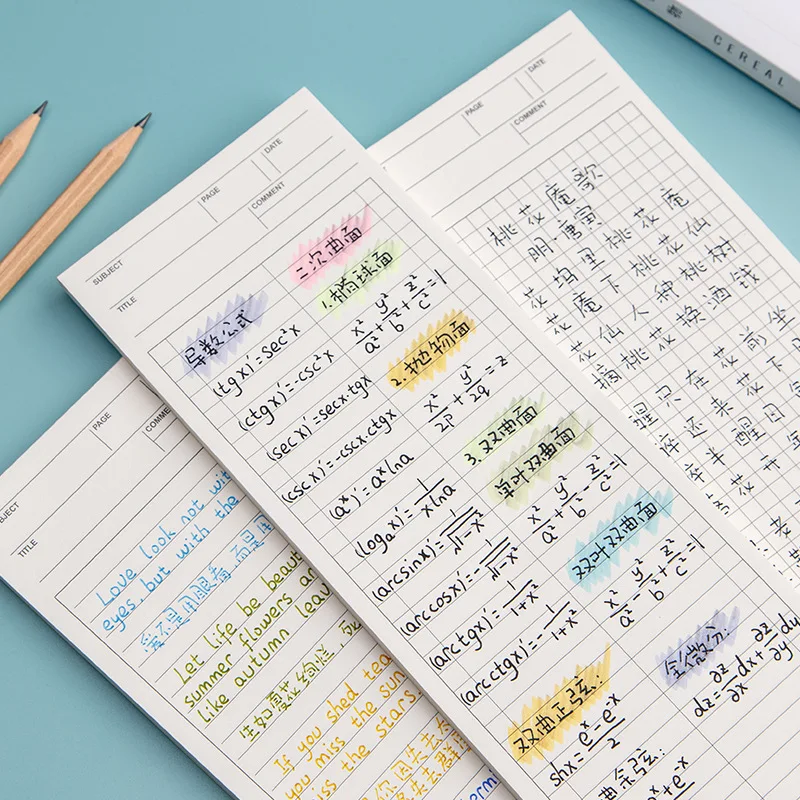 CEREAL
SUBJECT
PAGE
DATE
TITLE
COMMENT
导数公式
(tg x)′=sec²x
(ctg x)′=-csc²x
(sec x)′=secx·tgx
(csc x)′=-cscx.ctgx
(aˣ)′=aˣlna
(logₐx)′=1/(xlna)
(arc sinx)′=1/√(1-x²)
(arc cosx)′=-1/√(1-x²)
(arc tgx)′=1/(1+x²)
(arc ctgx)′=-1/(1+x²)
双曲正弦:
shx=(eˣ-e⁻ˣ)/2
二次曲面
1.椭球面
x²/a²+y²/b²+z²/c²=1
2.抛物面
x²/2p+y²/2q=z
3.双曲面
单叶双曲面
x²/a²+y²/b²-z²/c²=1
双叶双曲面
x²/a²-y²/b²+z²/c²=1
全微分:
dz=∂z/∂x dx+∂z/∂y dy
PAGE
DATE
COMMENT
桃花庵歌
明·唐寅
花坞里桃花庵
花庵下桃花仙
花仙人种桃树
摘桃花换酒钱
醒只在花前坐
醉还来花下
醉半醒日
花开
PAGE
TITLE
Love look not with
eyes, but with the
爱不是用眼看,而是用
Let life be beaut
summer flowers an
like autumn leav
生如夏花绚烂,死
If you shed tea
you miss the sun
miss the stars.